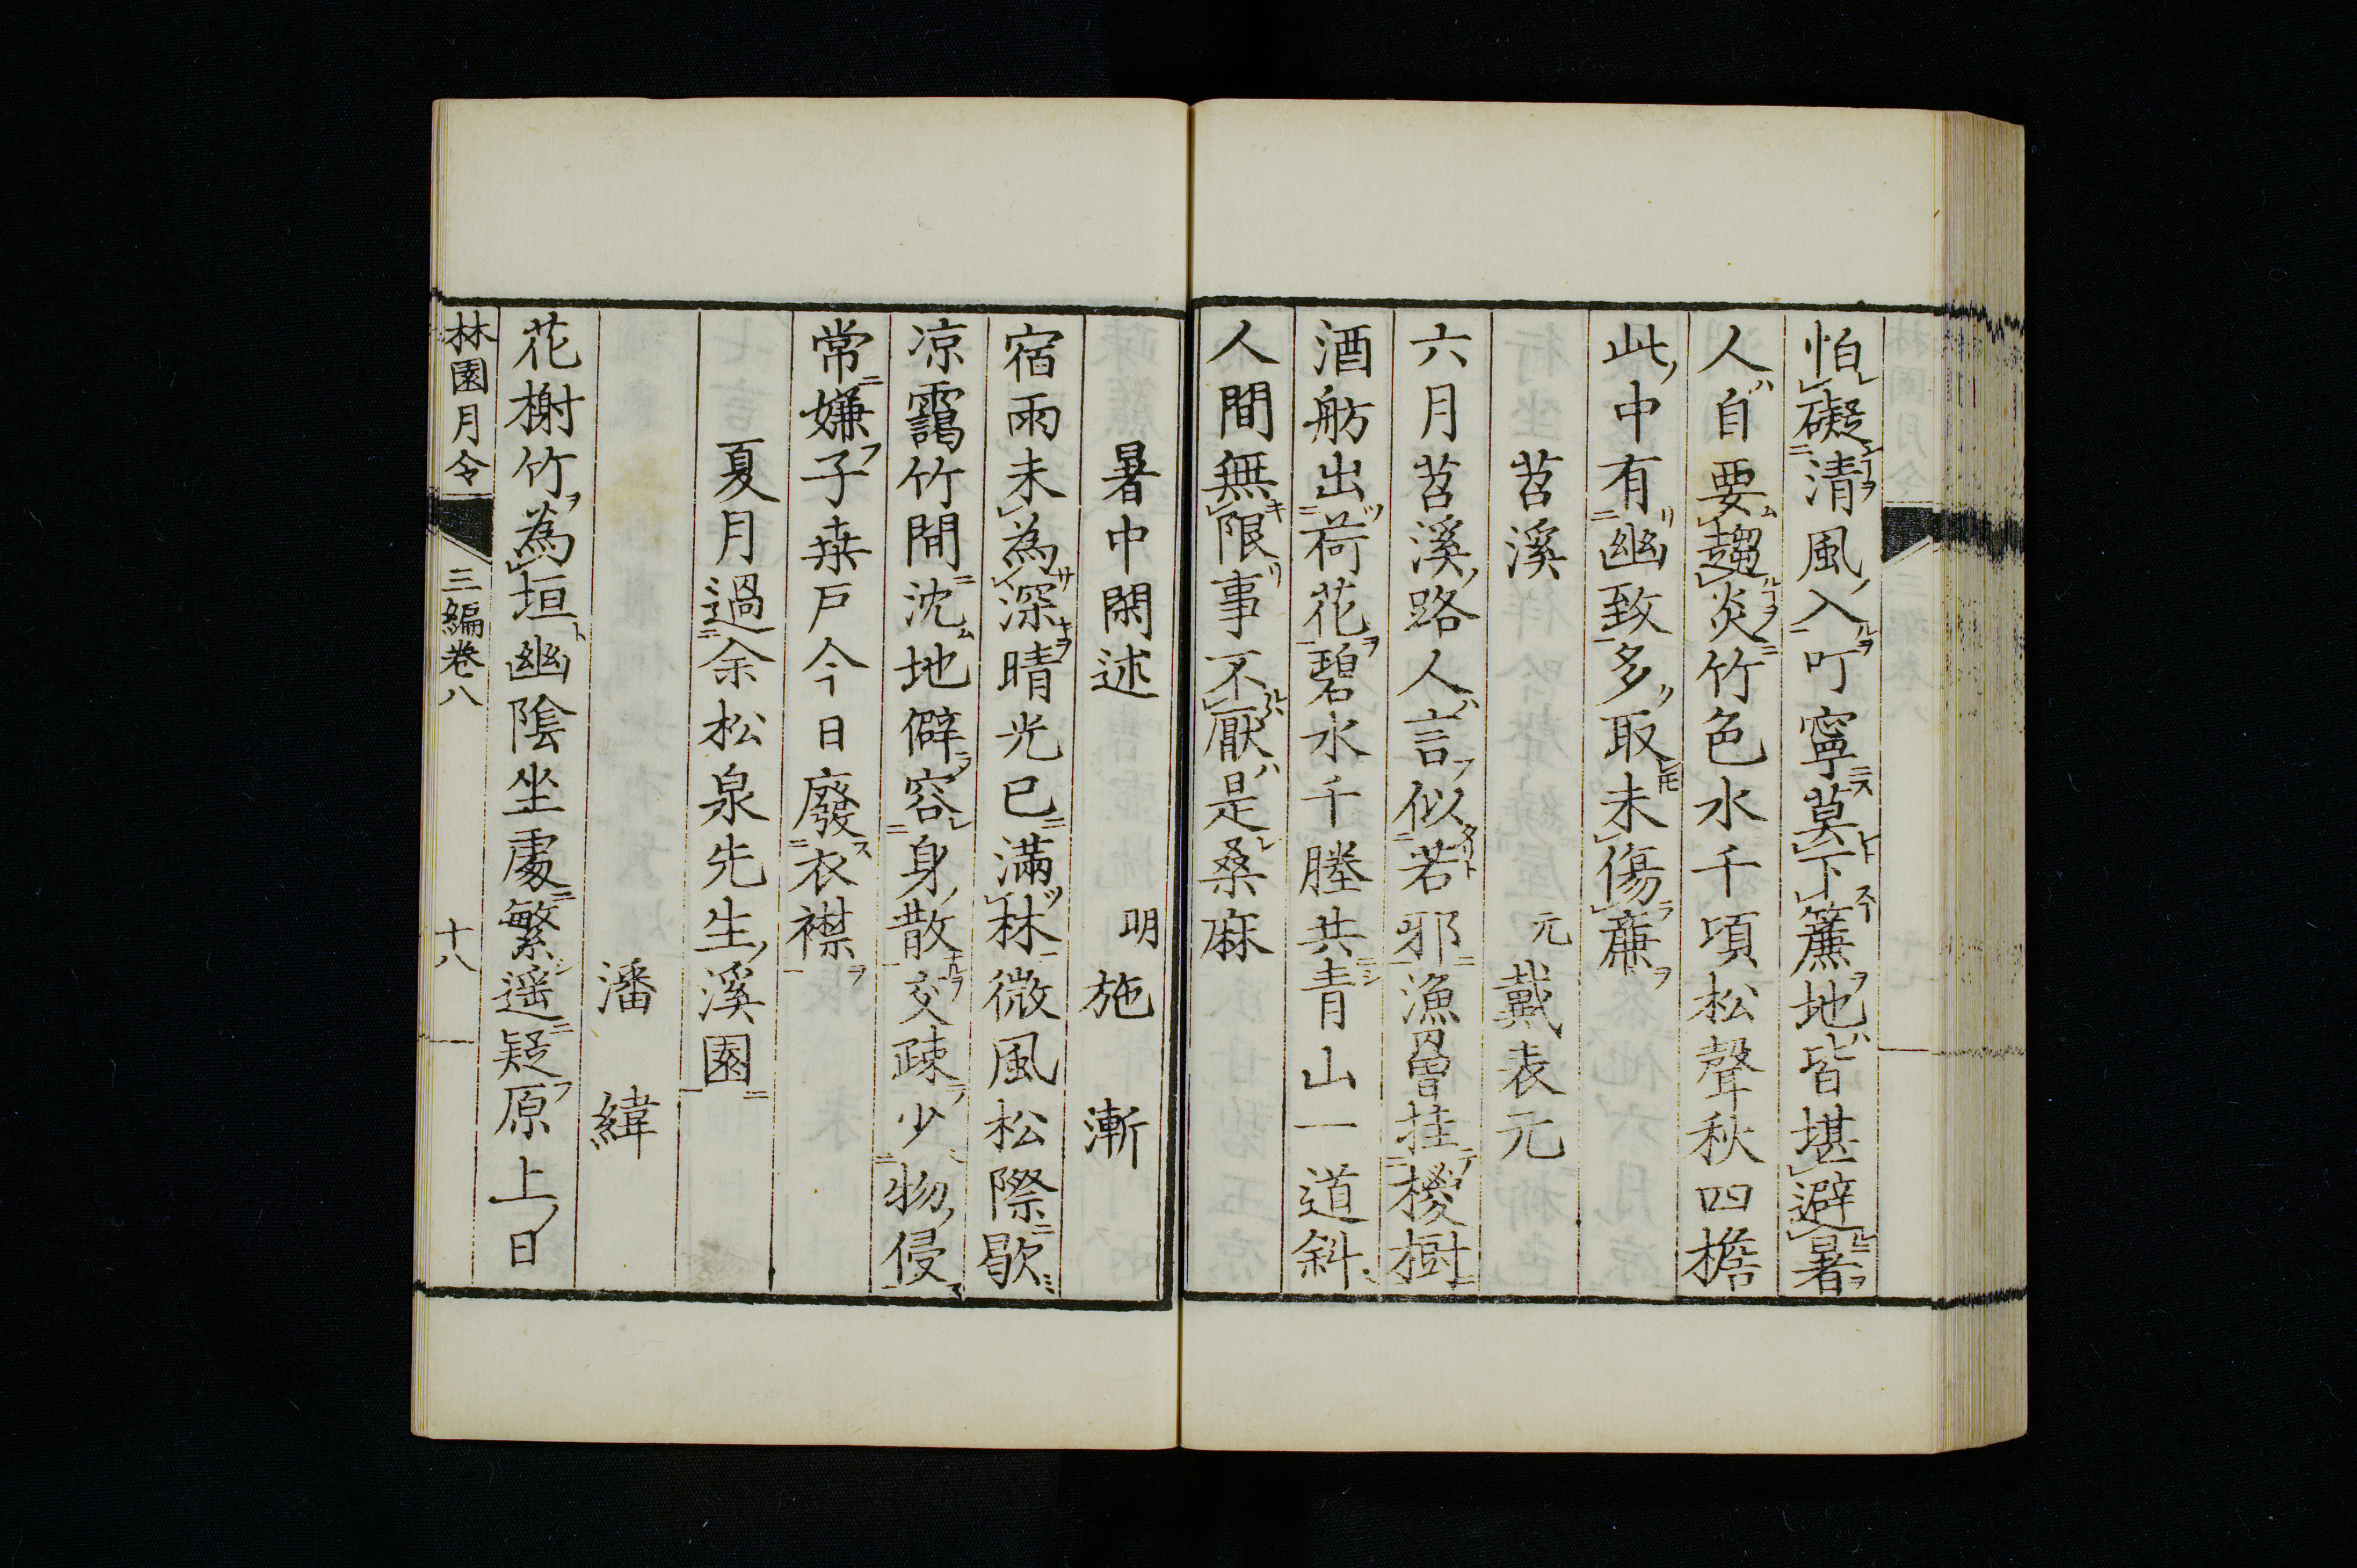 怕礙清風入叮寧莫下簾地皆堪避暑
人自要趨炎竹色水千頃松聲秋四檐
此中有幽致多取未傷廉
苕溪　元戴表元
六月苕溪路人言似若邪漁罾挂椶樹
酒舫出荷花碧水千塍共青山一道斜
人間無限事不厭是桑麻
暑中閑述　明施漸
宿雨未為深晴光已滿林微風松際歇
凉靄竹間沈地僻容身散交疎少物侵
常嫌子桒戸今日廢衣襟
夏月過余松泉先生溪園
潘緯
花榭竹為垣幽陰坐處繁遥疑原上日
林園月令　三編卷八　十八